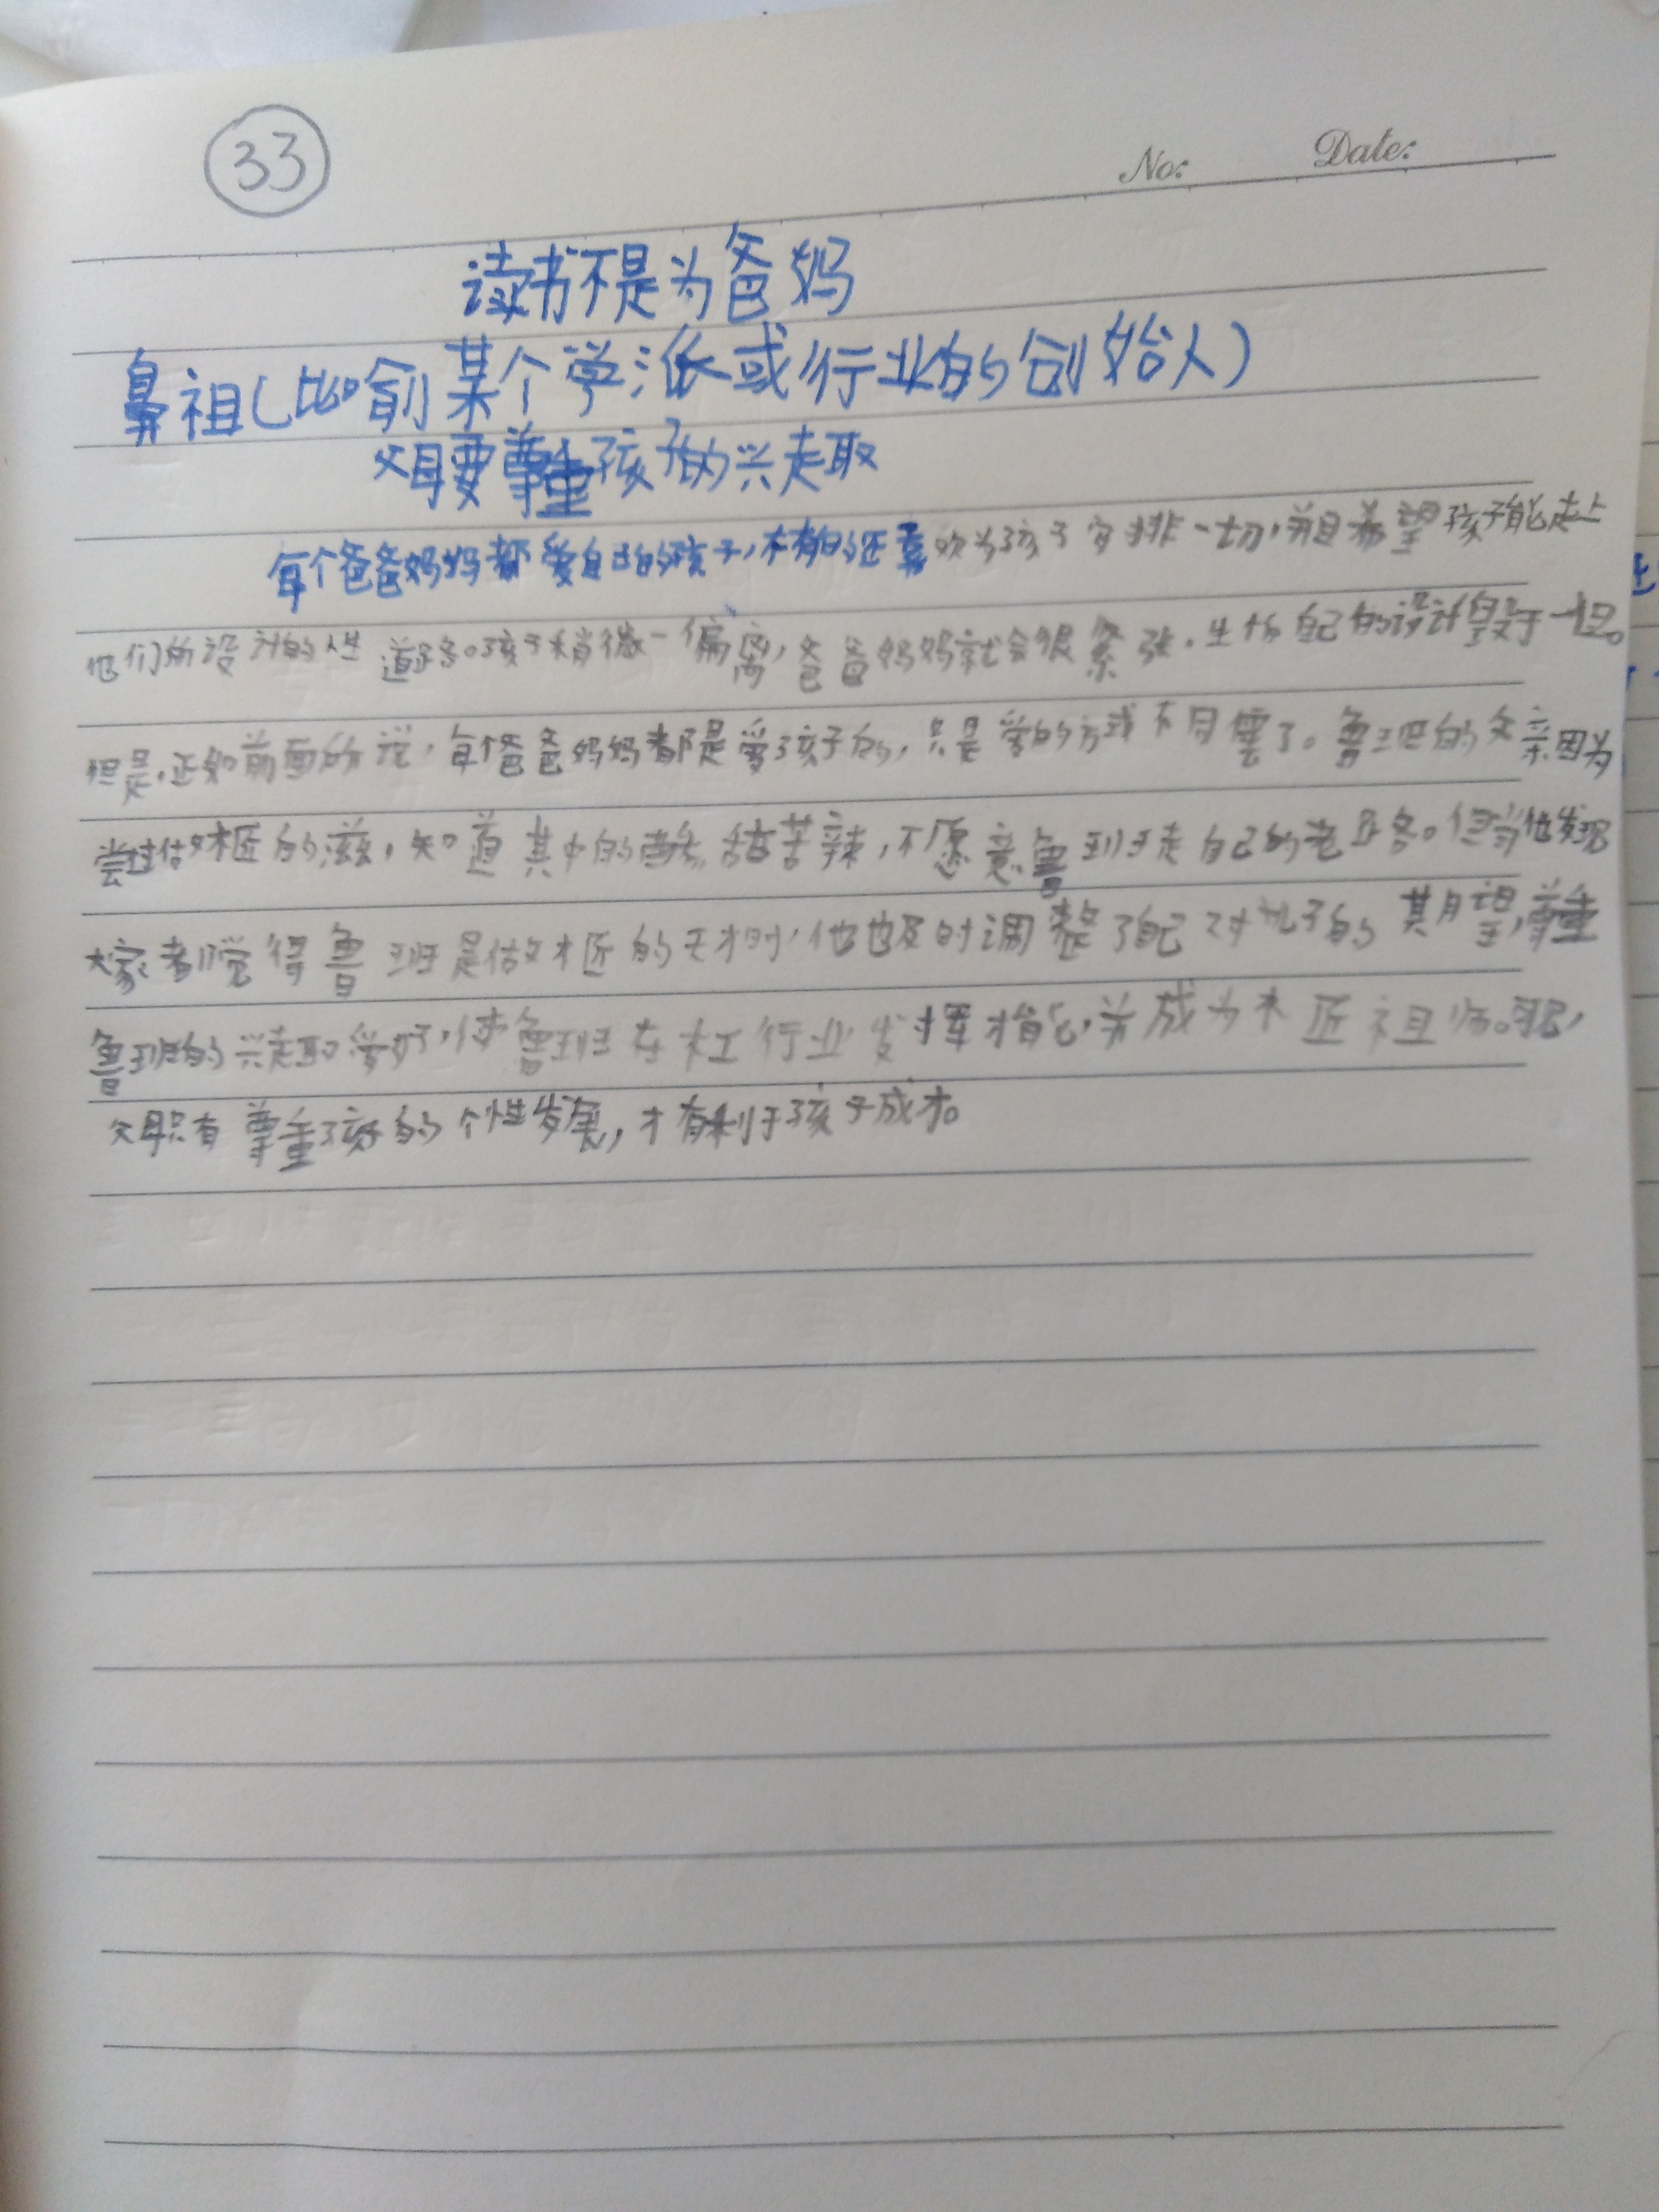 33
No: Date:
读书不是为爸妈
鼻祖(比喻某个学派或行业的创始人)
父母要尊重孩子的兴趣
每个爸爸妈妈都爱自己的孩子,有的还喜欢为孩子安排一切,并且希望孩子能走上
他们所设计的人生道路。孩子稍微一偏离,爸爸妈妈就会很紧张.生怕自己的设计毁于一旦。
但是,正如前面所说,每个爸爸妈妈都是爱孩子的,只是爱的方式不同罢了。鲁班的父亲因为
尝过做木匠的滋,知道其中的酸甜苦辣,不愿意鲁班走自己的老路。但当他发现
大家都觉得鲁班是做木匠的天才时,他也及时调整了自己对儿子的期望,尊重
鲁班的兴趣爱好,使鲁班在木工行业发挥才能,并成为木匠祖师。可见,
父母只有尊重孩子的个性发展,才有利于孩子成才。